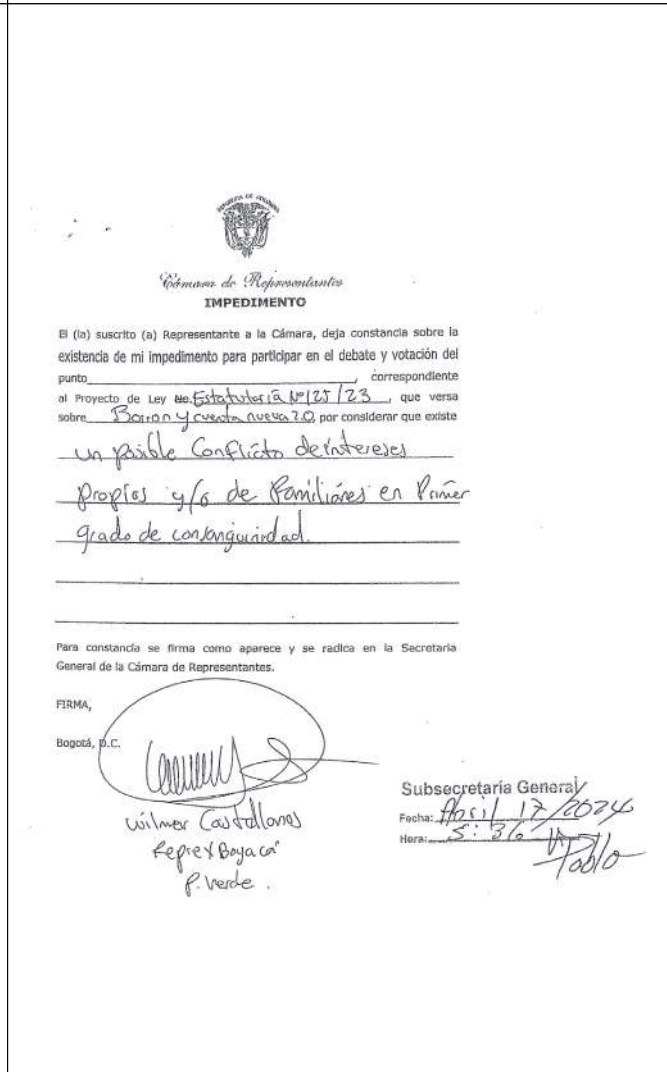 REPUBLICA DE COLOMBIA
Cámara de Representantes
IMPEDIMENTO
El (la) suscrito (a) Representante a la Cámara, deja constancia sobre la
existencia de mi impedimento para participar en el debate y votación del
punto_____, correspondiente
al Proyecto de Ley No. Estatutaria Nº 125/23, que versa
sobre Borron y cuenta nueva 2.0, por considerar que existe
un posible Conflicto de intereses
propios y/o de familiares en Primer
grado de consanguinidad.
Para constancia se firma como aparece y se radica en la Secretaria
General de la Cámara de Representantes.
FIRMA,
Bogotá, D.C.
Wilmer Castellanos
Repre x Boyacá
P. Verde.
Subsecretaría General
Fecha: Abril 17/2024
Hora: 5:36
Pablo